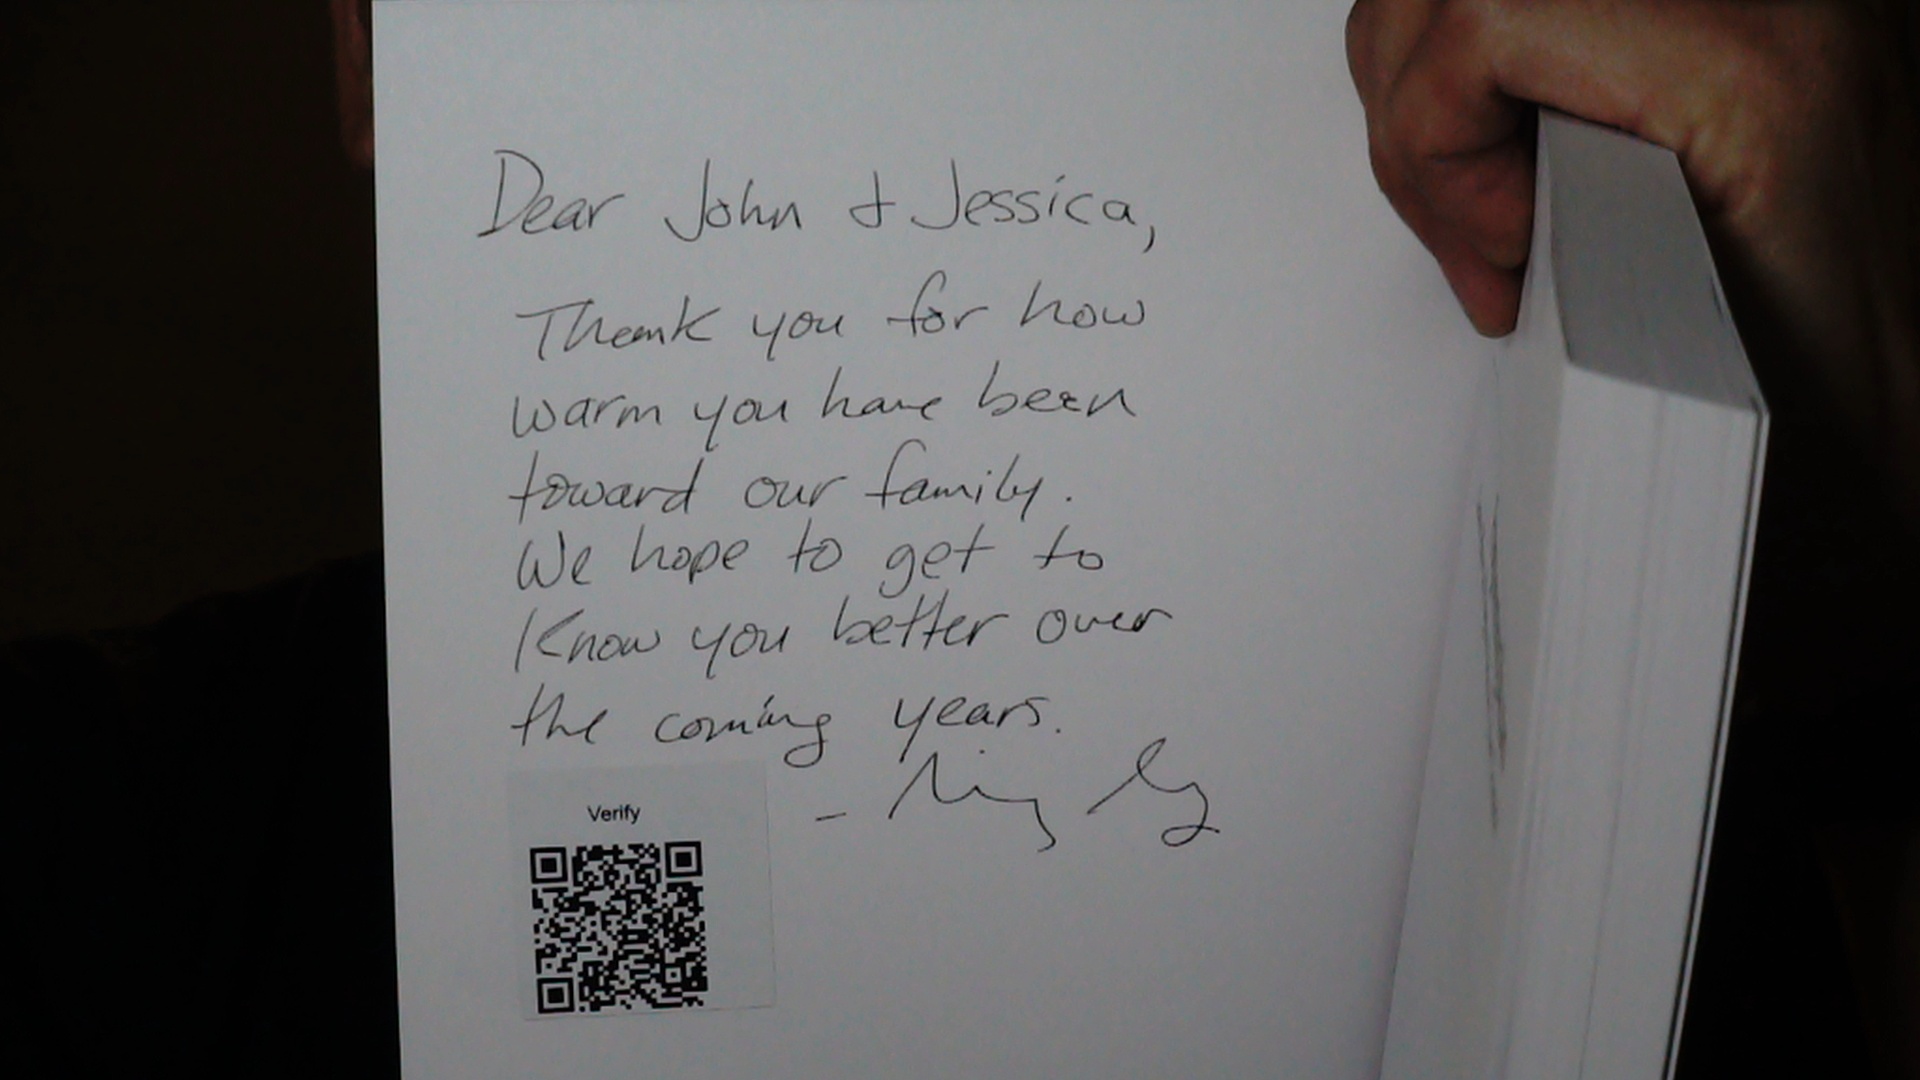 Dear John & Jessica,
Thank you for how
warm you have been
toward our family.
We hope to get to
Know you better over
the coming years.
Verify